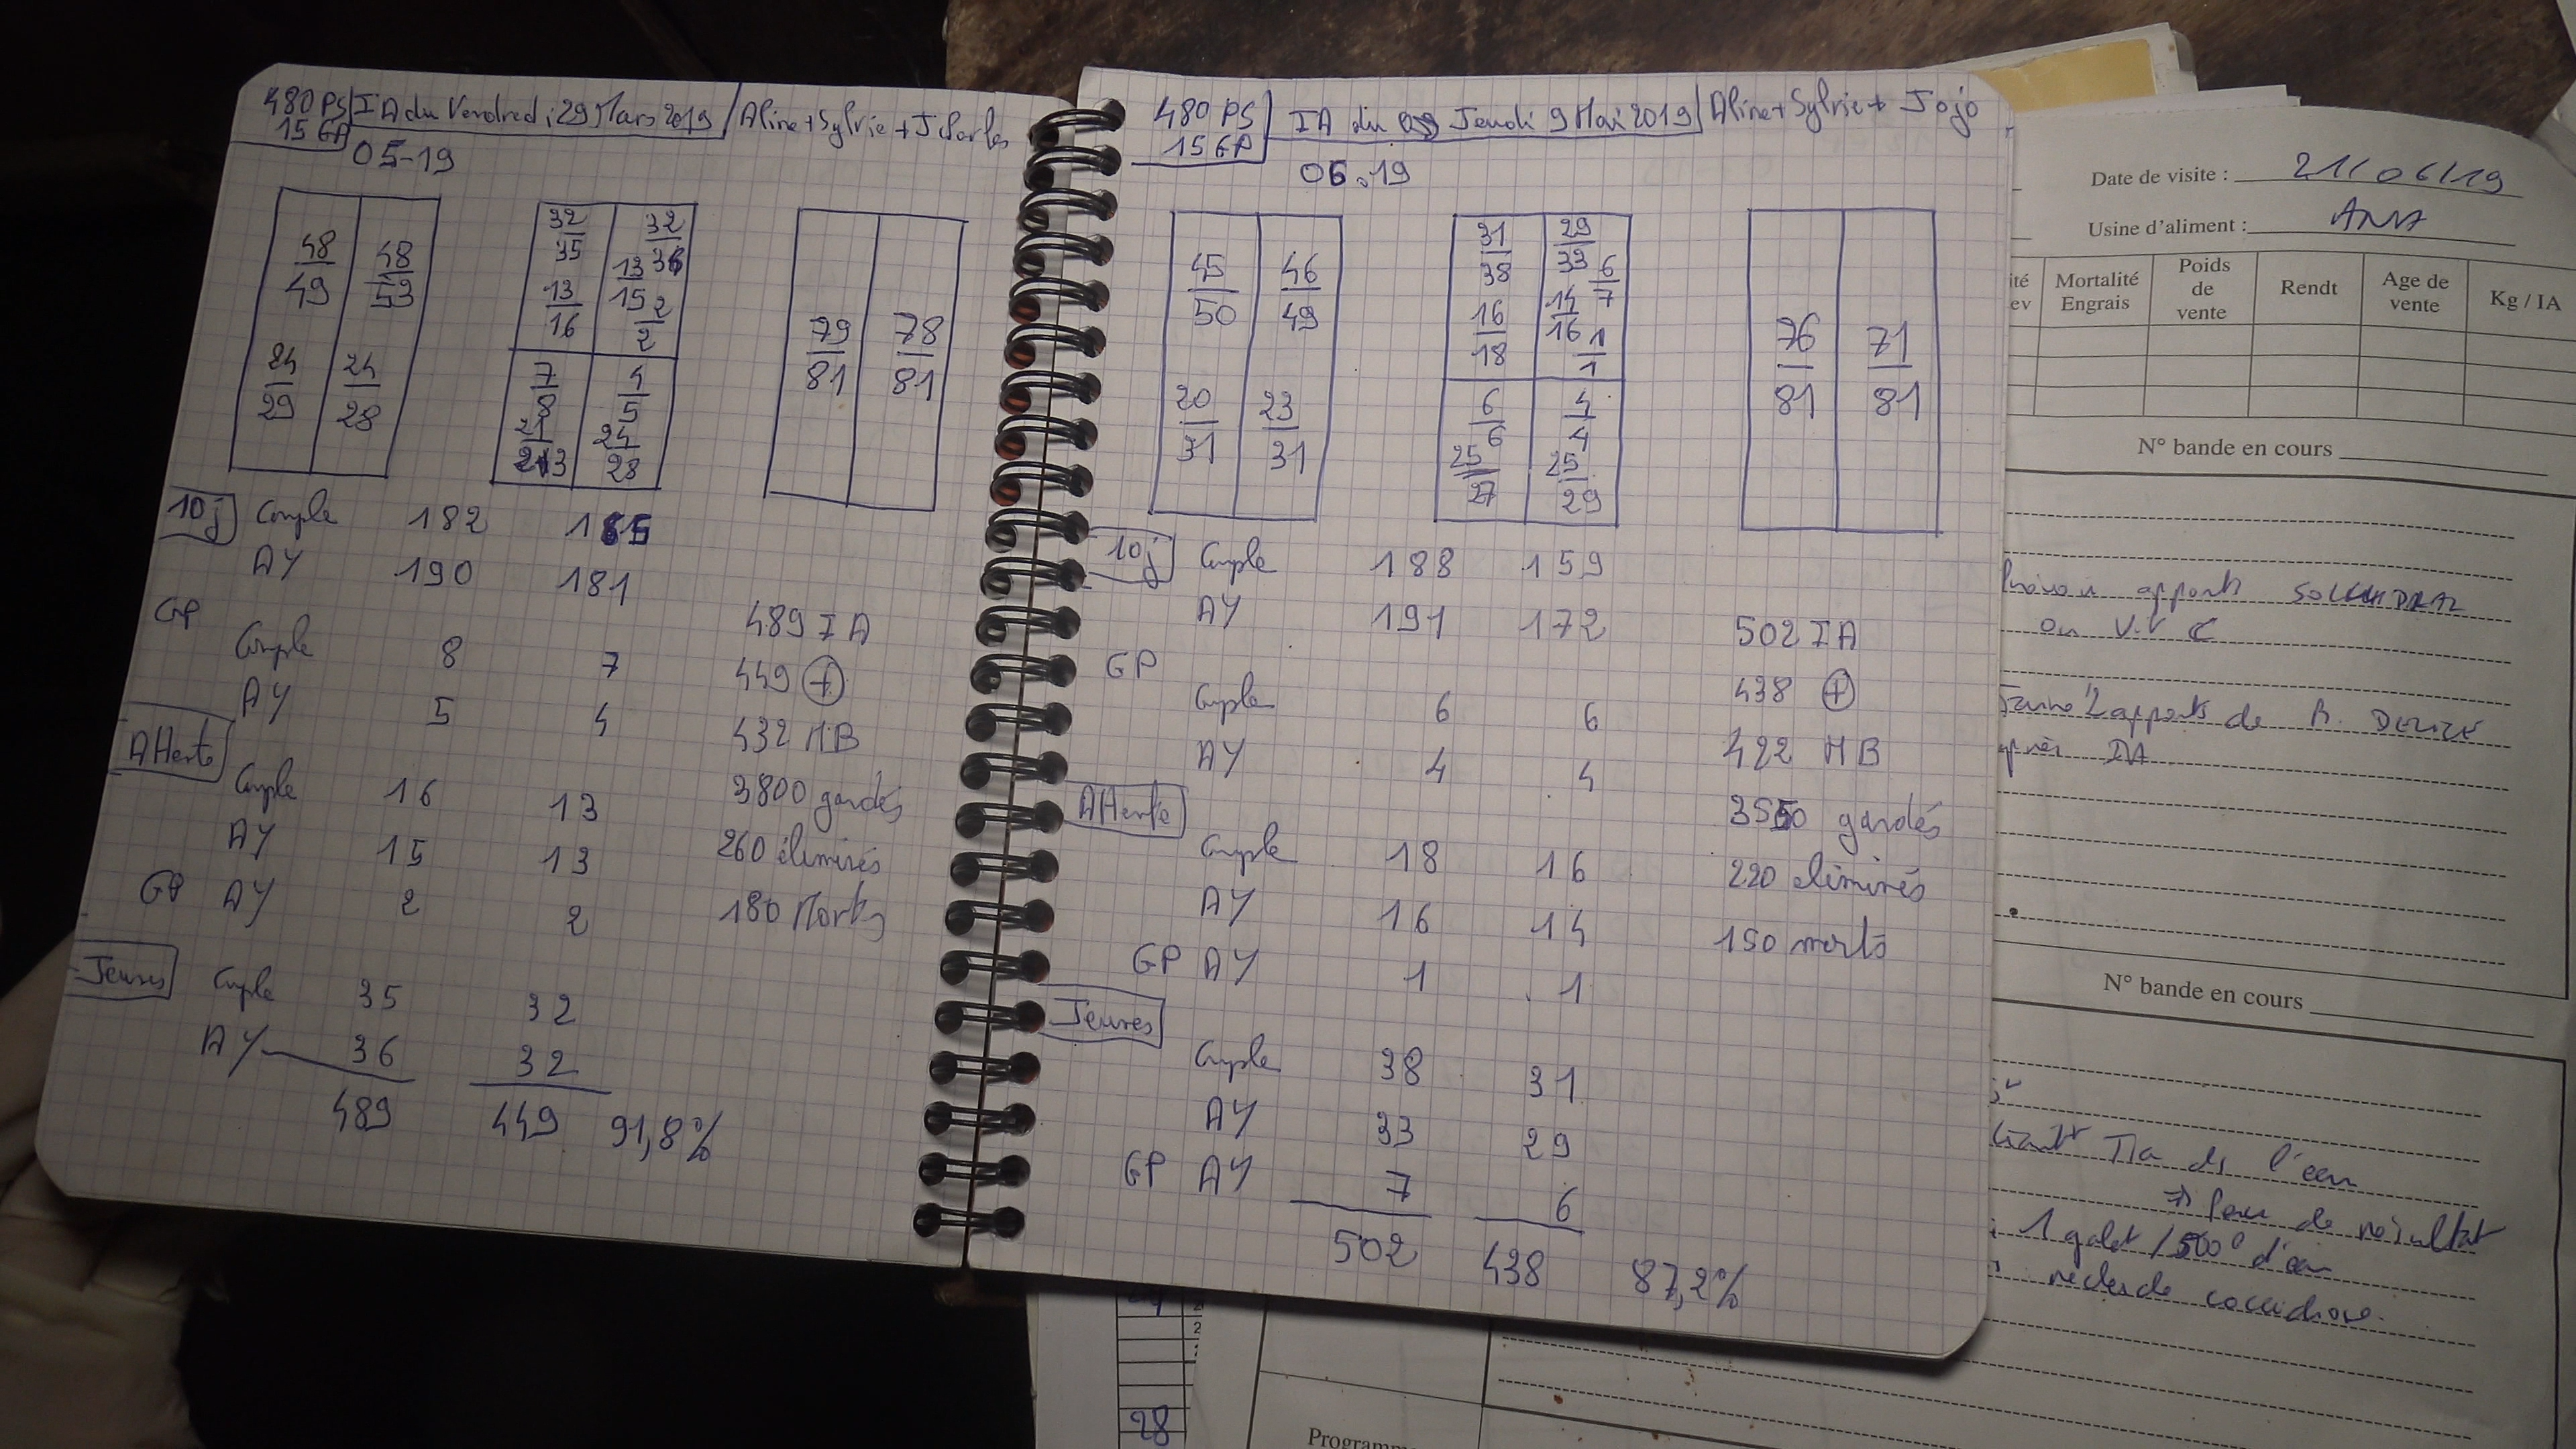 480 PS IA du Vendredi 29 Mars 2019 Aline + Sylvie + J.
15 GP
05-19
48 48
49 53
24 24
29 28
32 32
35 36
13 13
16 15
2
2
7 4
8 5
24
28
79 78
81 81
10j Couple 182
AY 190 181
GP
Couple 8 7
AY 5 4
Attente
Couple 16 13
AY 15 13
GP AY 2 2
Jeunes Cuple 35 32
AY 36 32
489 449 91,8%
489 IA
449 +
432 MB
3800 gardés
260 éliminés
180 Morts
480 PS IA du Jeudi 9 Mai 2019 Aline + Sylvie + Jojo
15 GP
06.19
45 46
50 49
20 23
31 31
31 29
38 33
6
7
16 14
18 16
1
1
6 4
6 4
25 25
27 29
76 71
81 81
10j Cuple 188 159
AY 191 172
GP
Cuple 6 6
AY 4 4
Attente
Cuple 18 16
AY 16 14
GP AY 1 1
Jeunes
Cuple 38 31
AY 33 29
GP AY 7 6
502 438 87,2%
502 IA
438 +
422 MB
3550 gardés
220 éliminés
150 morts
Date de visite : 21/06/19
Usine d'aliment :
ité Mortalité Poids Rendt Age de Kg / IA
ev Engrais de vente
vente
N° bande en cours
apports
ou
apports de
IA
N° bande en cours
de l'eau
=> Peu de résultat
1 galet / 500l d'eau
recherche coccidiose.
28
Programm